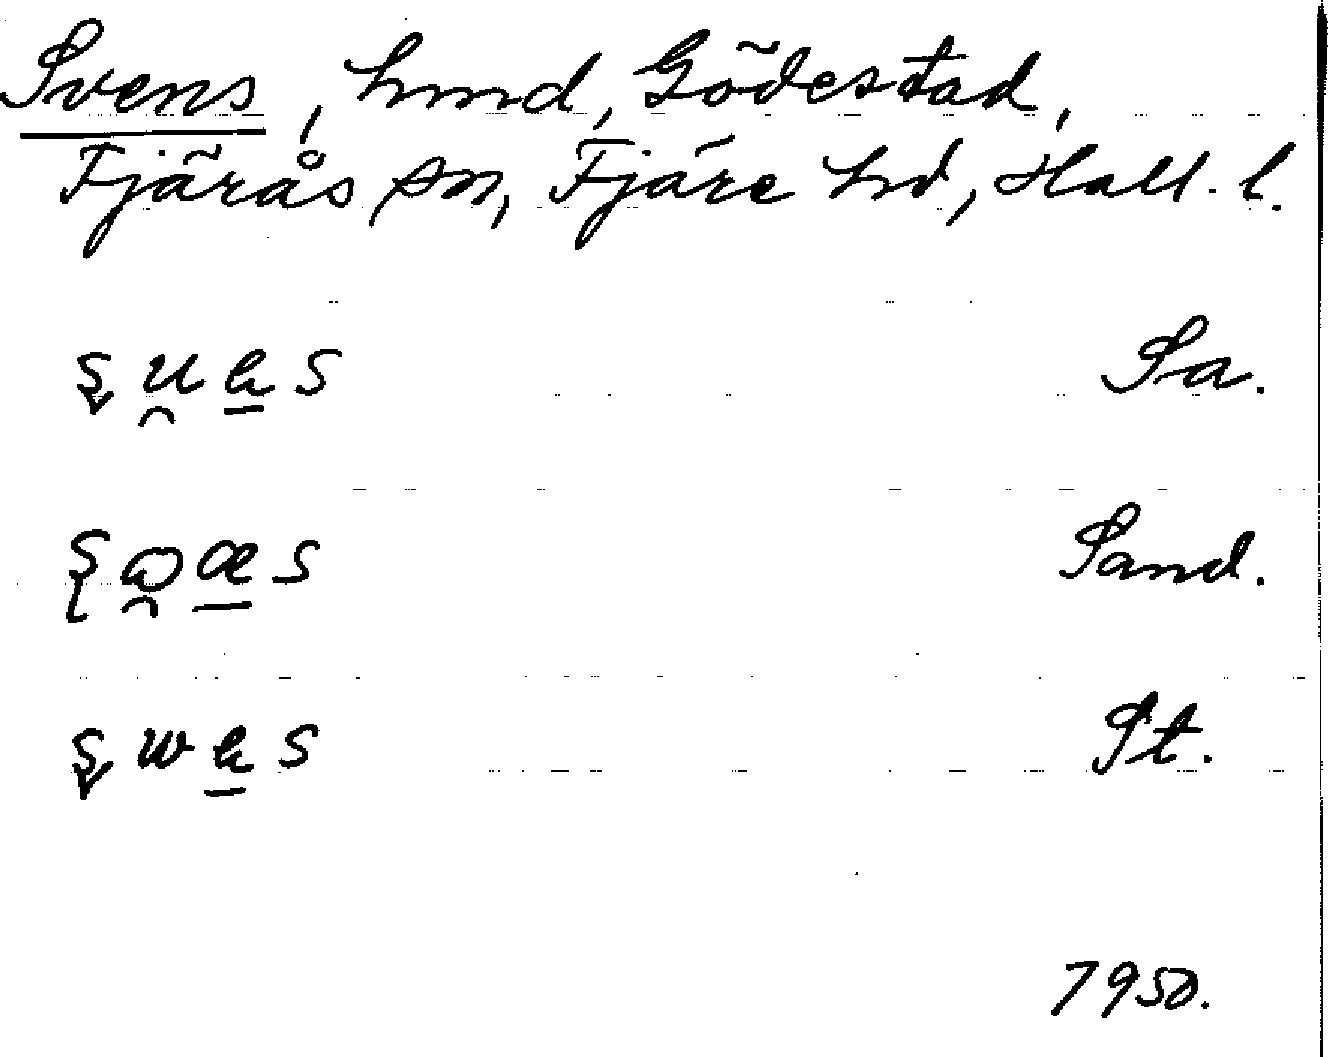 Svens, hmd, Gödestad,
Fjärås sn, Fjäre hd, Hall. l.
Sa.
Sand.
St.
1950.